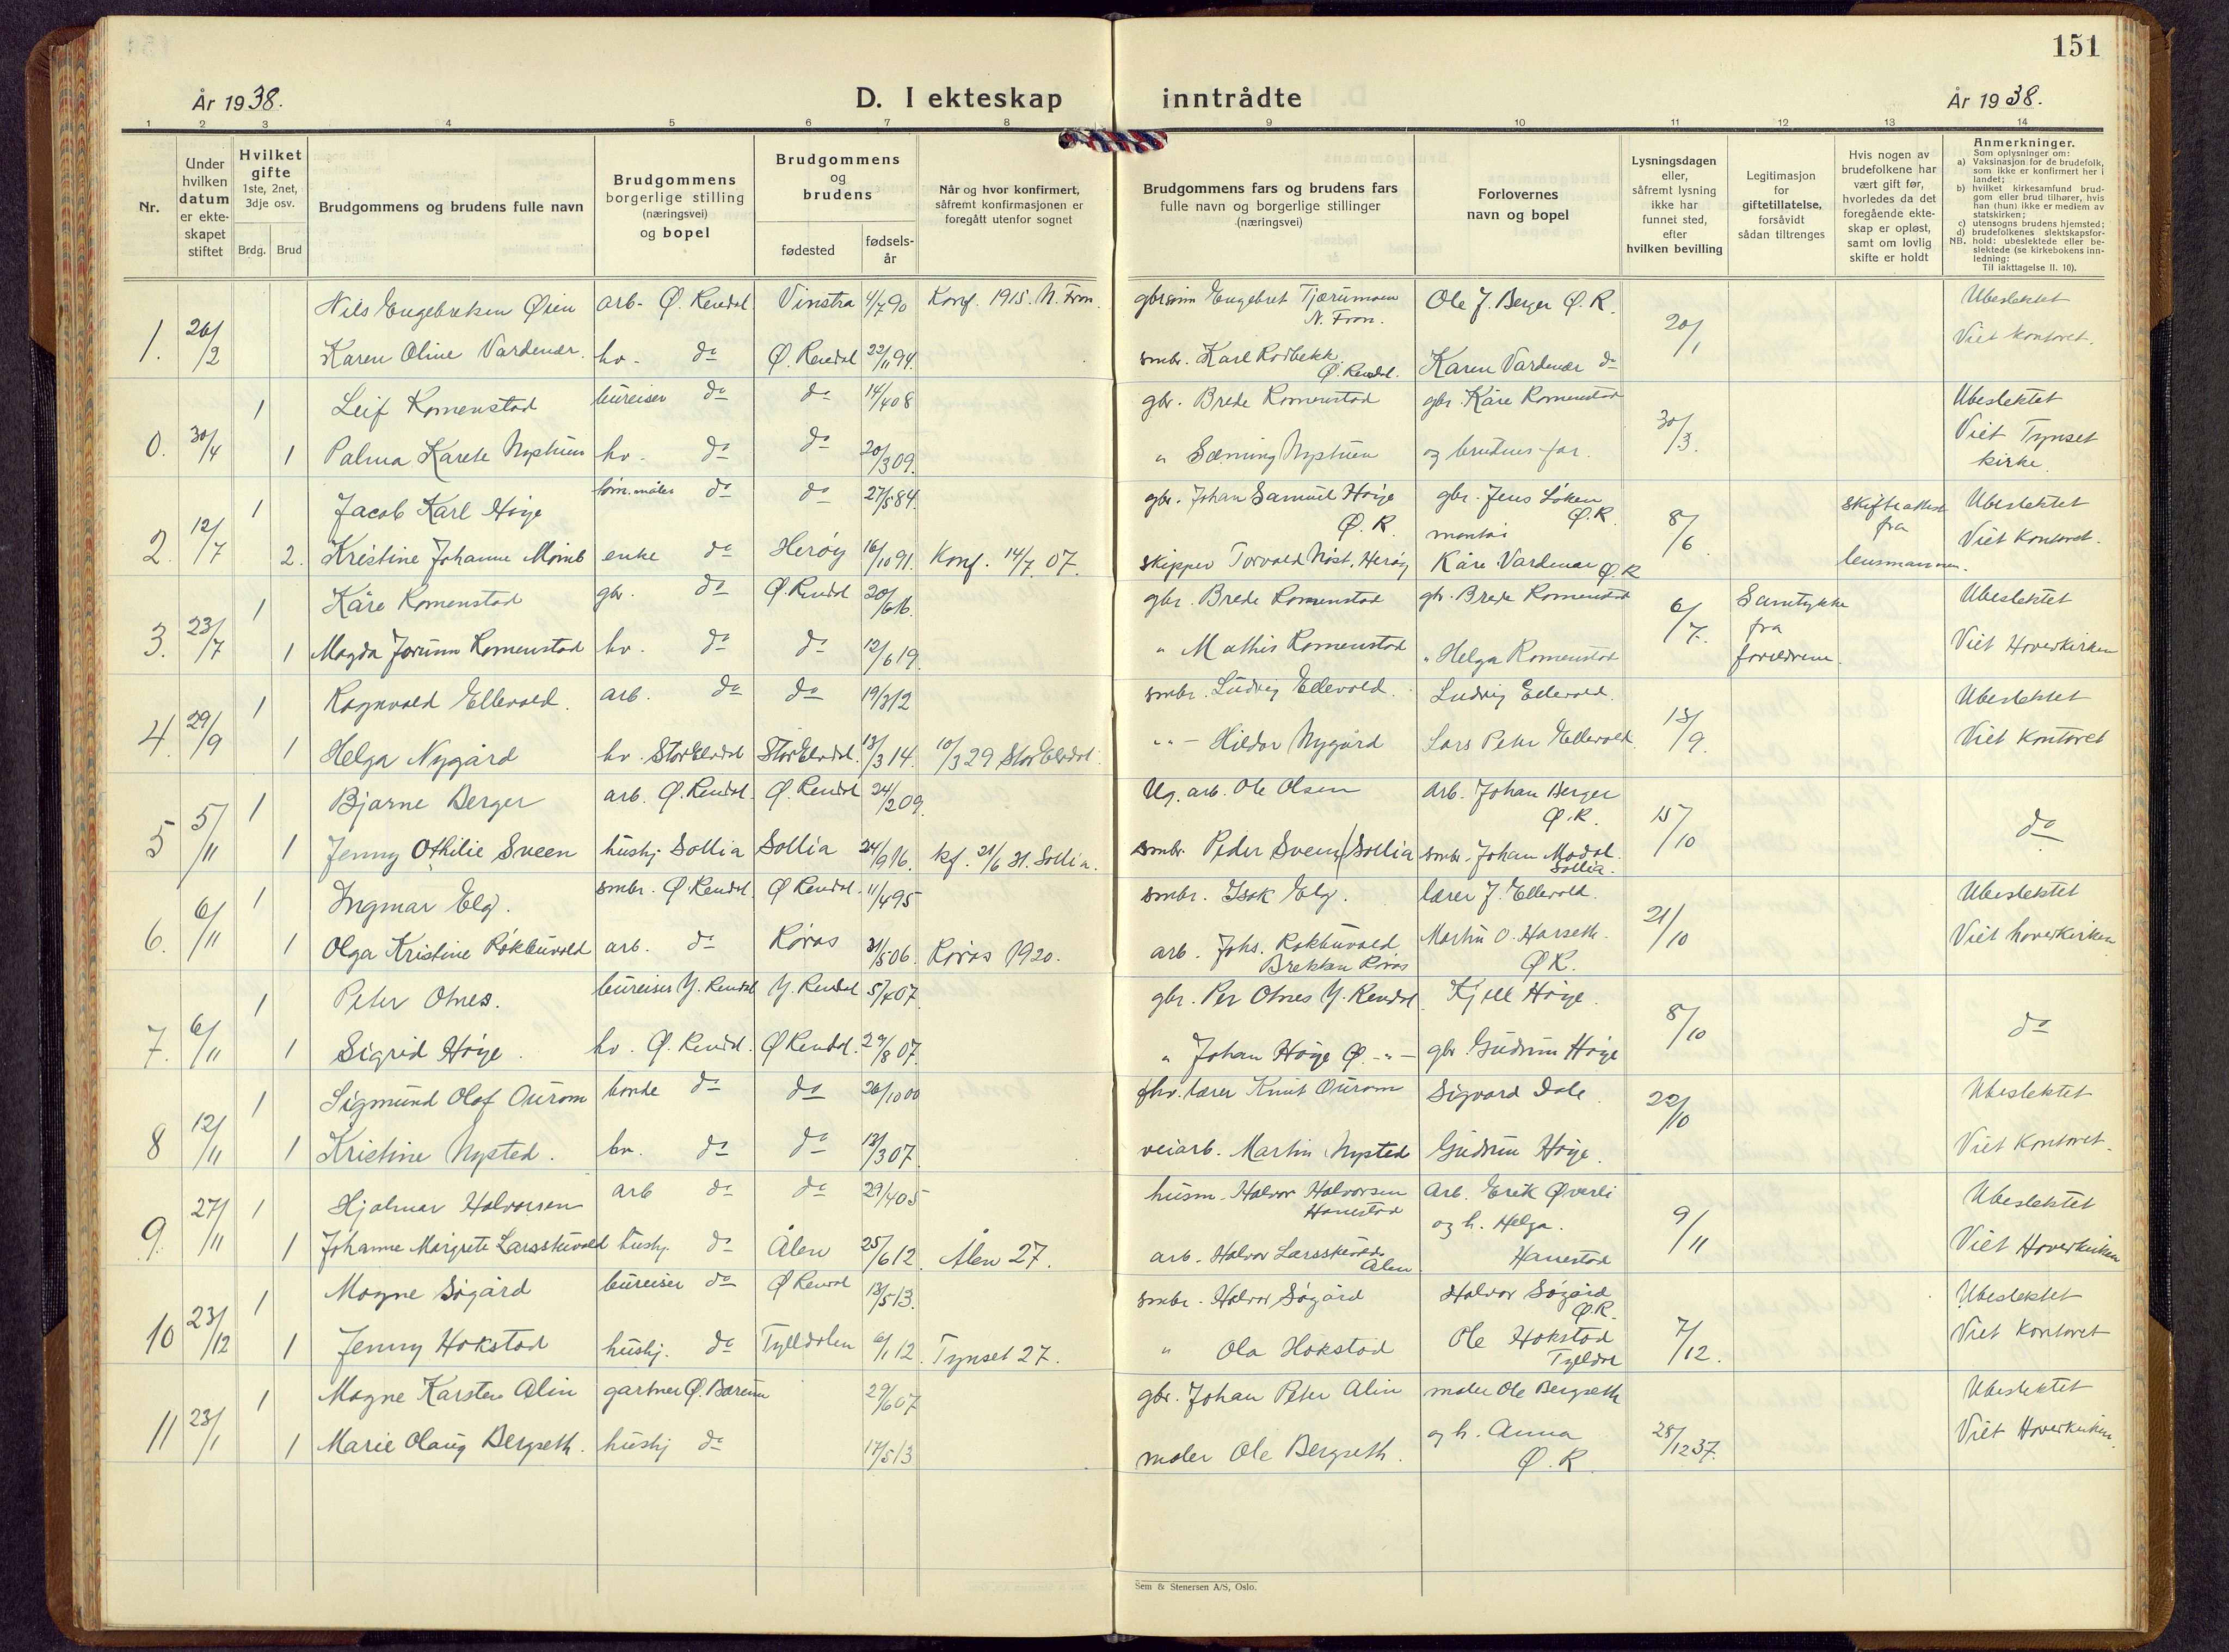 151
År 1938.
D. I ekteskap inntrådte
År 1938.
1 2 3 4 5 6 7 8 9 10 11 12 13 14
Nr.
Under
hvilken
datum
er ekte-
skapet
stiftet
Hvilket
gifte
1ste, 2net,
3dje osv.
Brdg. Brud
Brudgommens og brudens fulle navn
Brudgommens
borgerlige stilling
(næringsvei)
og bopel
Brudgommens
og
brudens
fødested
fødsels-
år
Når og hvor konfirmert,
såfremt konfirmasjonen er
foregått utenfor sognet
Brudgommens fars og brudens fars
fulle navn og borgerlige stillinger
(næringsvei)
Forlovernes
navn og bopel
Lysningsdagen
eller,
såfremt lysning
ikke har
funnet sted,
efter
hvilken bevilling
Legitimasjon
for
giftetillatelse,
forsåvidt
sådan tiltrenges
Hvis nogen av
brudefolkene har
vært gift før,
hvorledes da det
foregående ekte-
skap er opløst,
samt om lovlig
skifte er holdt
Anmerkninger.
Som oplysninger om:
a) Vaksinasjon for de brudefolk,
som ikke er konfirmert her i
landet;
b) hvilket kirkesamfund brud-
gom eller brud tilhører, hvis
han (hun) ikke er medlem av
statskirken;
c) utensogns brudens hjemsted;
d) brudefolkenes slektskapsfor-
NB. hold: ubeslektede eller be-
slektede (se kirkebokens inn-
ledning:
Til iakttagelse II. 10).
1. 26/2 Nils Engebretsen Øien arb. Ø. Rendal Vinstra 4/7 90 Konf. 1915. N. Fron. gbr.sønn Engebret Tjærumoen N. Fron. Ole J. Berger Ø. R. 20/1 Ubeslektet
Karen Oline Vardenær. hv. do Ø. Rendal 22/11 94. smbr. Karl Rodbekk Ø. Rendal. Karen Vardenær do Viet kontoret.
0. 30/4 1 Leif Romenstad bureiser do do 14/4 08 gbr. Brede Romenstad gbr. Kåre Romenstad 30/3. Ubeslektet
1 Palma Karete Nyhuen hv. do do 20/3 09. " Sæming Nyhuen og brudens far. Viet Tynset kirke.
2. 12/7 1 Jacob Karl Høye tøm.måler do do 27/5 84. gbr. Johan Samuel Høye Ø. R. gbr. Jens Løken Ø. R. 8/6 Skifteattest fra lensmannen. Ubeslektet
2. Kristine Johanne Momb enke do Herøy 16/10 91. Konf. 14/7. 07. skipper Torvald Nøst, Herøy montør Kåre Vardenær Ø. R Viet Kontoret.
3. 23/7 1 Kåre Romenstad gbr. do Ø. Rendal 20/6 16. gbr. Brede Romenstad gbr. Brede Romenstad 6/7. Samtykke fra foreldrene. Ubeslektet
1 Magda Jorunn Romenstad hv. do do 12/6 19. " Mathis Romenstad " Helga Romenstad Viet Hoverkirken
4. 29/9 1 Ragnvald Ellevold. arb. do do 19/3 12 smbr. Ludvig Ellevold. Ludvig Ellevold. 13/9. Ubeslektet
1 Helga Nygård hv. StorElvdal StorElvdal. 13/3 14. 10/3 29 StorElvdal. " - Hildor Nygård Lars Peter Ellevold. Viet Kontoret
5 5/11 1 Bjarne Berger arb. Ø. Rendal. Ø. Rendal 24/2 09. Ug. arb. Ole Olsen arb. Johan Berger Ø. R. 15/10 do
1 Jenny Othilie Sveen hushj Sollia Sollia 24/9 16. kf. 21/6 31. Sollia. smbr. Peder Sveen / Sollia smbr. Johan Modal. Sollia.
6. 6/11 1 Ingmar Elg. smbr. Ø. Rendal. Ø Rendal. 11/4 95 smbr. Isak Elg. lærer J. Ellevold. 21/10 Ubeslektet
1 Olga Kristine Rokkuvold arb. do Røros 31/5 06. Røros 1920. arb. Johs. Rokkuvold Brekken Røros Martin O. Harseth. Ø R. Viet hoverkirken
7. 6/11 1 Peter Otnes. bureiser Y. Rendal Y. Rendal 5/4 07. gbr. Per Otnes Y. Rendal Kjell Høye. 8/10 do
1 Sigrid Høye. hv. Ø. Rendal. Ø Rendal. 29/8 07. " Johan Høye Ø. - " - gbr. Gudrun Høye
8 12/11 1 Sigmund Olaf Ourom bonde do do 26/10 00 fhv. lærer Knut Ourom Sigvard Dale. 22/10 Ubeslektet
1 Kristine Nysted. hv. do do 13/3 07. veiarb. Martin Nysted Gudrun Høye. Viet Kontoret.
9. 27/11 1 Hjalmar Halvorsen arb do do 29/4 05 husm. Halvor Halvorsen Hanestad Arb. Erik Øverli 9/11 Ubeslektet
1 Johanne Margrete Larsskuvold hushj. do Ålen 25/6 12. Ålen 27. arb. Halvor Larsskuvold Ålen og h. Helga. Hanestad Viet Hoverkirken
10 23/12 1 Magne Søgård bureiser do Ø Rendal 13/5 13. smbr. Halvor Søgård Halvor Søgård Ø. R. 7/12. Ubeslektet
1 Jenny Hokstad hushj. do Tylldalen 6/1 12. Tynset 27. " Ola Hokstad Ole Hokstad Tylldal Viet Kontoret
11 23/1 1 Magne Karsten Alin gartner Ø. Bærum 29/6 07 gbr. Johan Peter Alin maler Ole Bergseth 28/12 37. Ubeslektet
1 Marie Olaug Bergseth. hushj do 17/5 13 maler Ole Bergseth. og h. Anna Ø. R Viet Hoverkirken.
Sem & Stenersen A/S, Oslo.